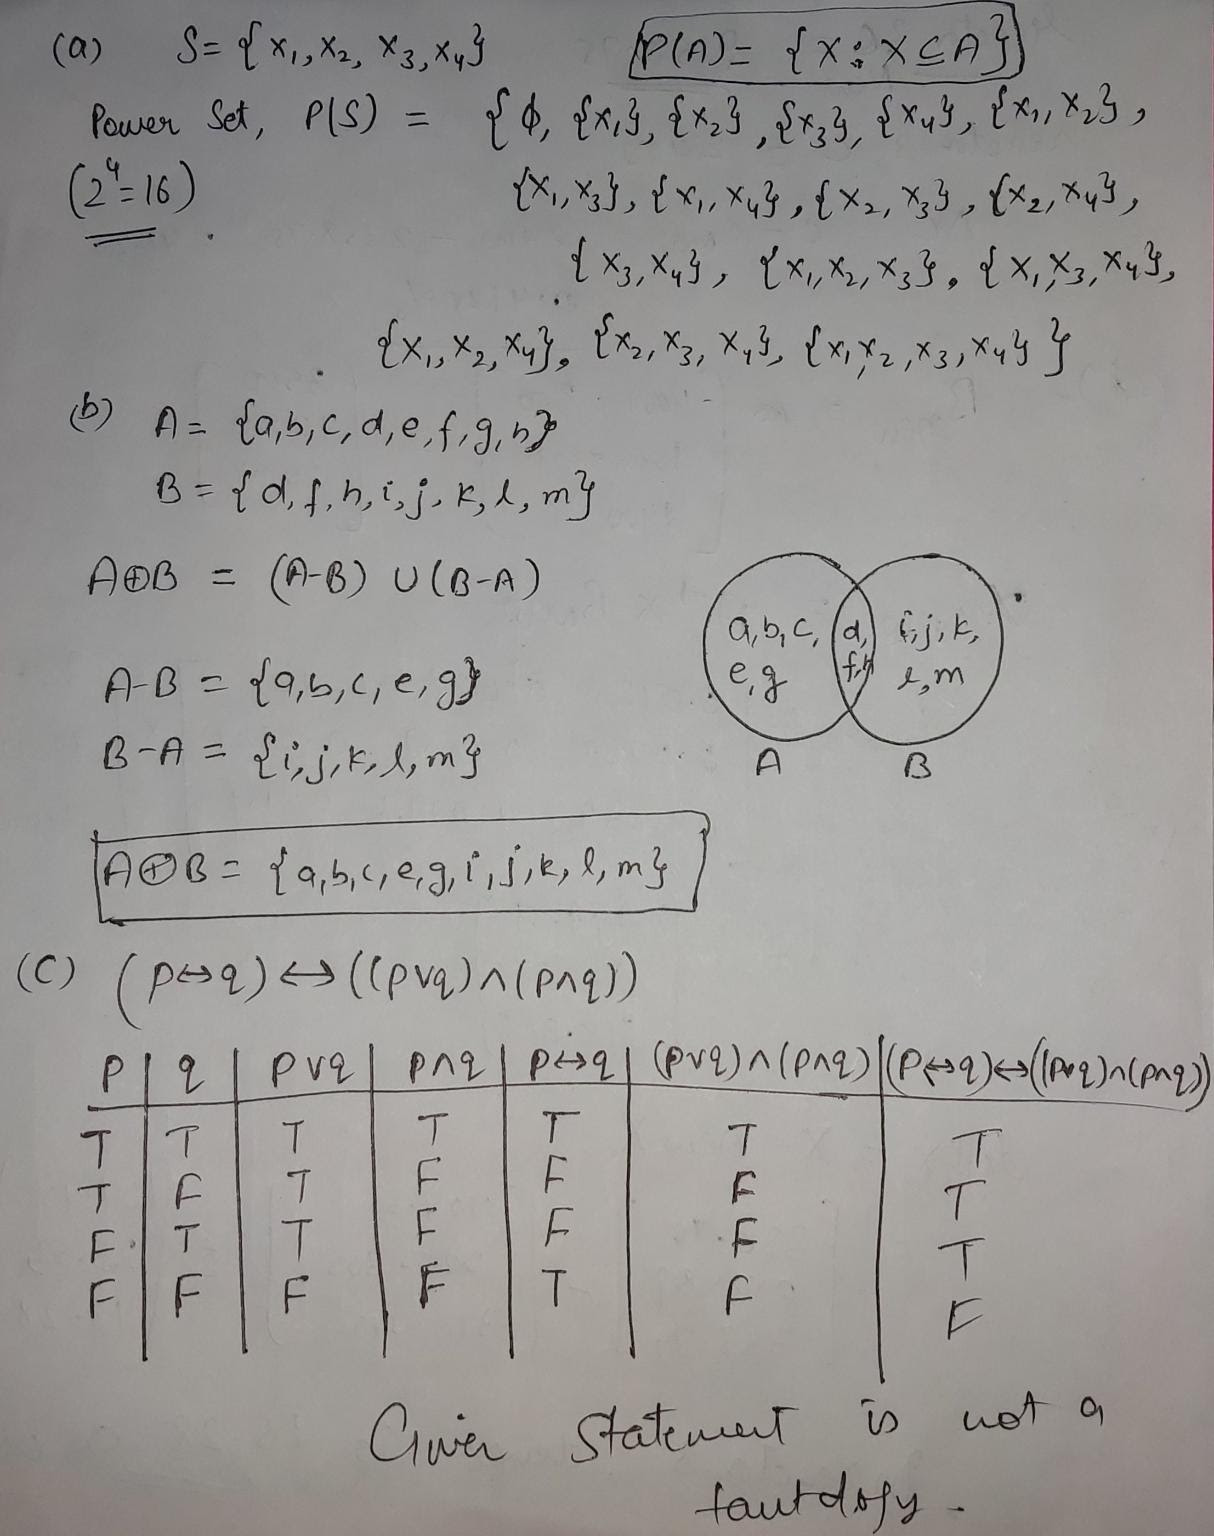 (a) S = {x₁, x₂, x₃, x₄} P(A) = {X : X ⊆ A}
Power Set, P(S) = {ϕ, {x₁}, {x₂}, {x₃}, {x₄}, {x₁, x₂},
(2⁴=16) {x₁, x₃}, {x₁, x₄}, {x₂, x₃}, {x₂, x₄},
{x₃, x₄}, {x₁, x₂, x₃}, {x₁, x₃, x₄},
{x₁, x₂, x₄}, {x₂, x₃, x₄}, {x₁, x₂, x₃, x₄}}
(b) A = {a, b, c, d, e, f, g, h}
B = {d, f, h, i, j, k, l, m}
A⊕B = (A-B) ∪ (B-A)
a, b, c, d, i, j, k,
e, g f, h l, m
A-B = {a, b, c, e, g}
B-A = {i, j, k, l, m}
A B
A⊕B = {a, b, c, e, g, i, j, k, l, m}
(C) (p↔q) ↔ ((p∨q)∧(p∧q))
P q p∨q p∧q p↔q (p∨q)∧(p∧q) (P↔q)↔((p∨q)∧(p∧q))
T T T T T T T
T F T F F F T
F T T F F F T
F F F F T F F
Given Statement is not a
tautology.